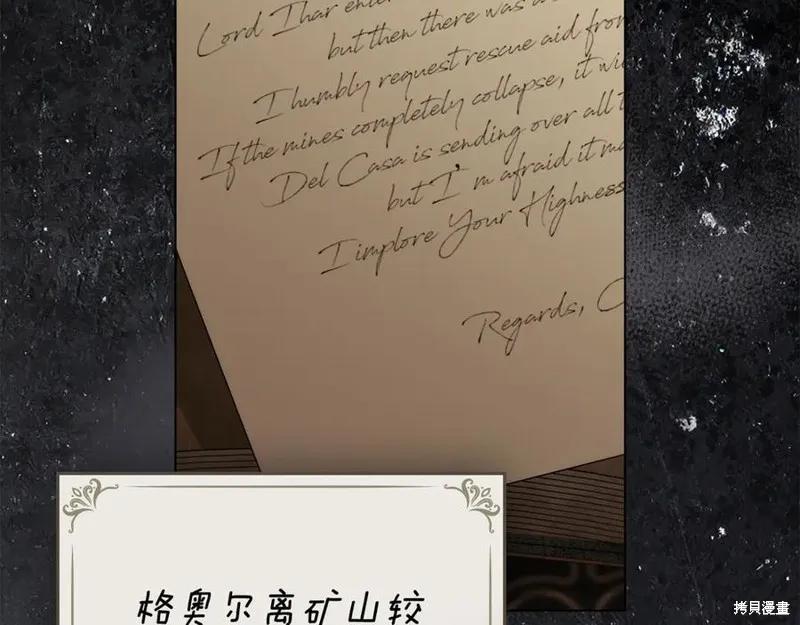 Lord Ihar
but then there was
I humbly request rescue aid from
If the mines completely collapse, it
Del Casa is sending over all
but I'm afraid it
I implore Your Highness
Regards,
格奥尔离矿山较
拷贝漫畫